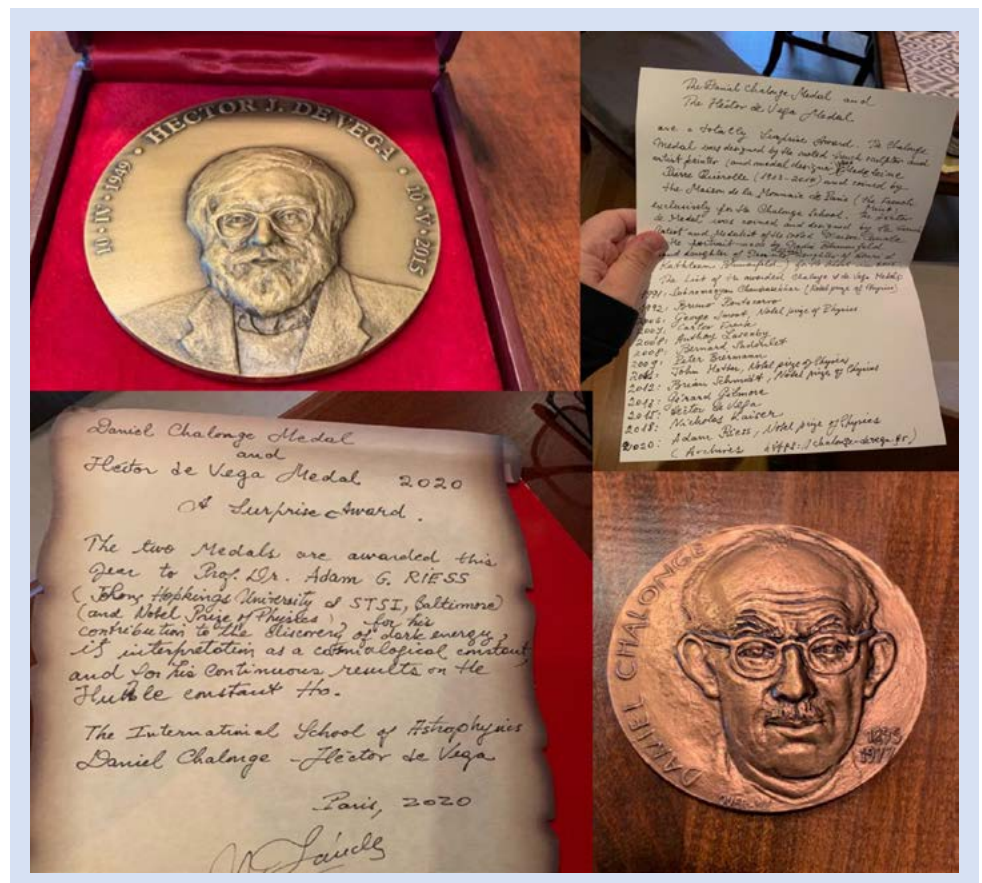 HECTOR J. DE VEGA
10 · IV · 1949
10 · V · 2015
The Daniel Chalonge Medal and
The Héctor de Vega Medal
are a totally Surprise Award. The Chalonge
Medal was designed by the noted french sculptor and
artist painter (and medal designer)
Pierre Quérolle and coined by
the Maison de la Monnaie de Paris (the French
exclusively for the Chalonge School. The Hector
de Medal was coined and designed by the
and Medalist of the noted
the portrait made by
and daughter of
Kathleen Blumenfeld
The List of the awarded Chalonge & de Vega Medals
1991: Subramanyan Chandrasekhar (Nobel prize of Physics)
1992: Bruno Pontecorvo
2006: George Smoot, Nobel prize of Physics
2007: Carlos Frenk
2008: Anthony Lasenby
2008: Bernard Sadoulet
2009: Peter Biermann
John Mather, Nobel prize of Physics
2012: Brian Schmidt, Nobel prize of Physics
2013: Gérard Gilmore
2015: Héctor de Vega
2018: Nicholas Kaiser
2020: Adam Riess, Nobel prize of Physics
(Archives chalonge-devega.fr)
Daniel Chalonge Medal
and
Héctor de Vega Medal 2020
A Surprise Award.
The two Medals are awarded this
year to Prof. Dr. Adam G. RIESS
(Johons Hopkings University & STSI, Baltimore)
(and Nobel Prize of Physics) for his
contribution to the discovery of dark energy,
its interpretation as a cosmological constant,
and for his Continuous results on the
Hubble constant Ho.
The International School of Astrophysics
Daniel Chalonge - Héctor de Vega
Paris, 2020
DANIEL CHALONGE
1977